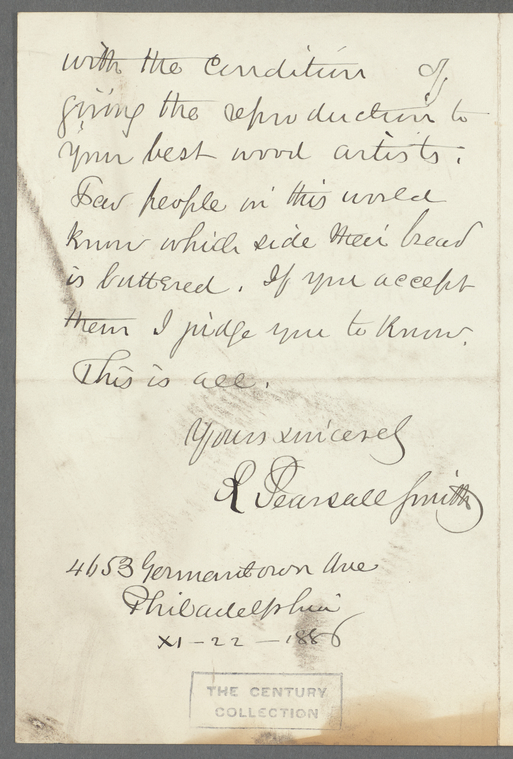 with the condition of
giving the reproduction to
your best wood artists.
Few people in this world
know which side their bread
is buttered. If you accept
them I judge you to know.
This is all.
Yours sincerely
R Pearsall Smith
4653 Germantown Ave
Philadelphia
XI-22-1886
THE CENTURY
COLLECTION